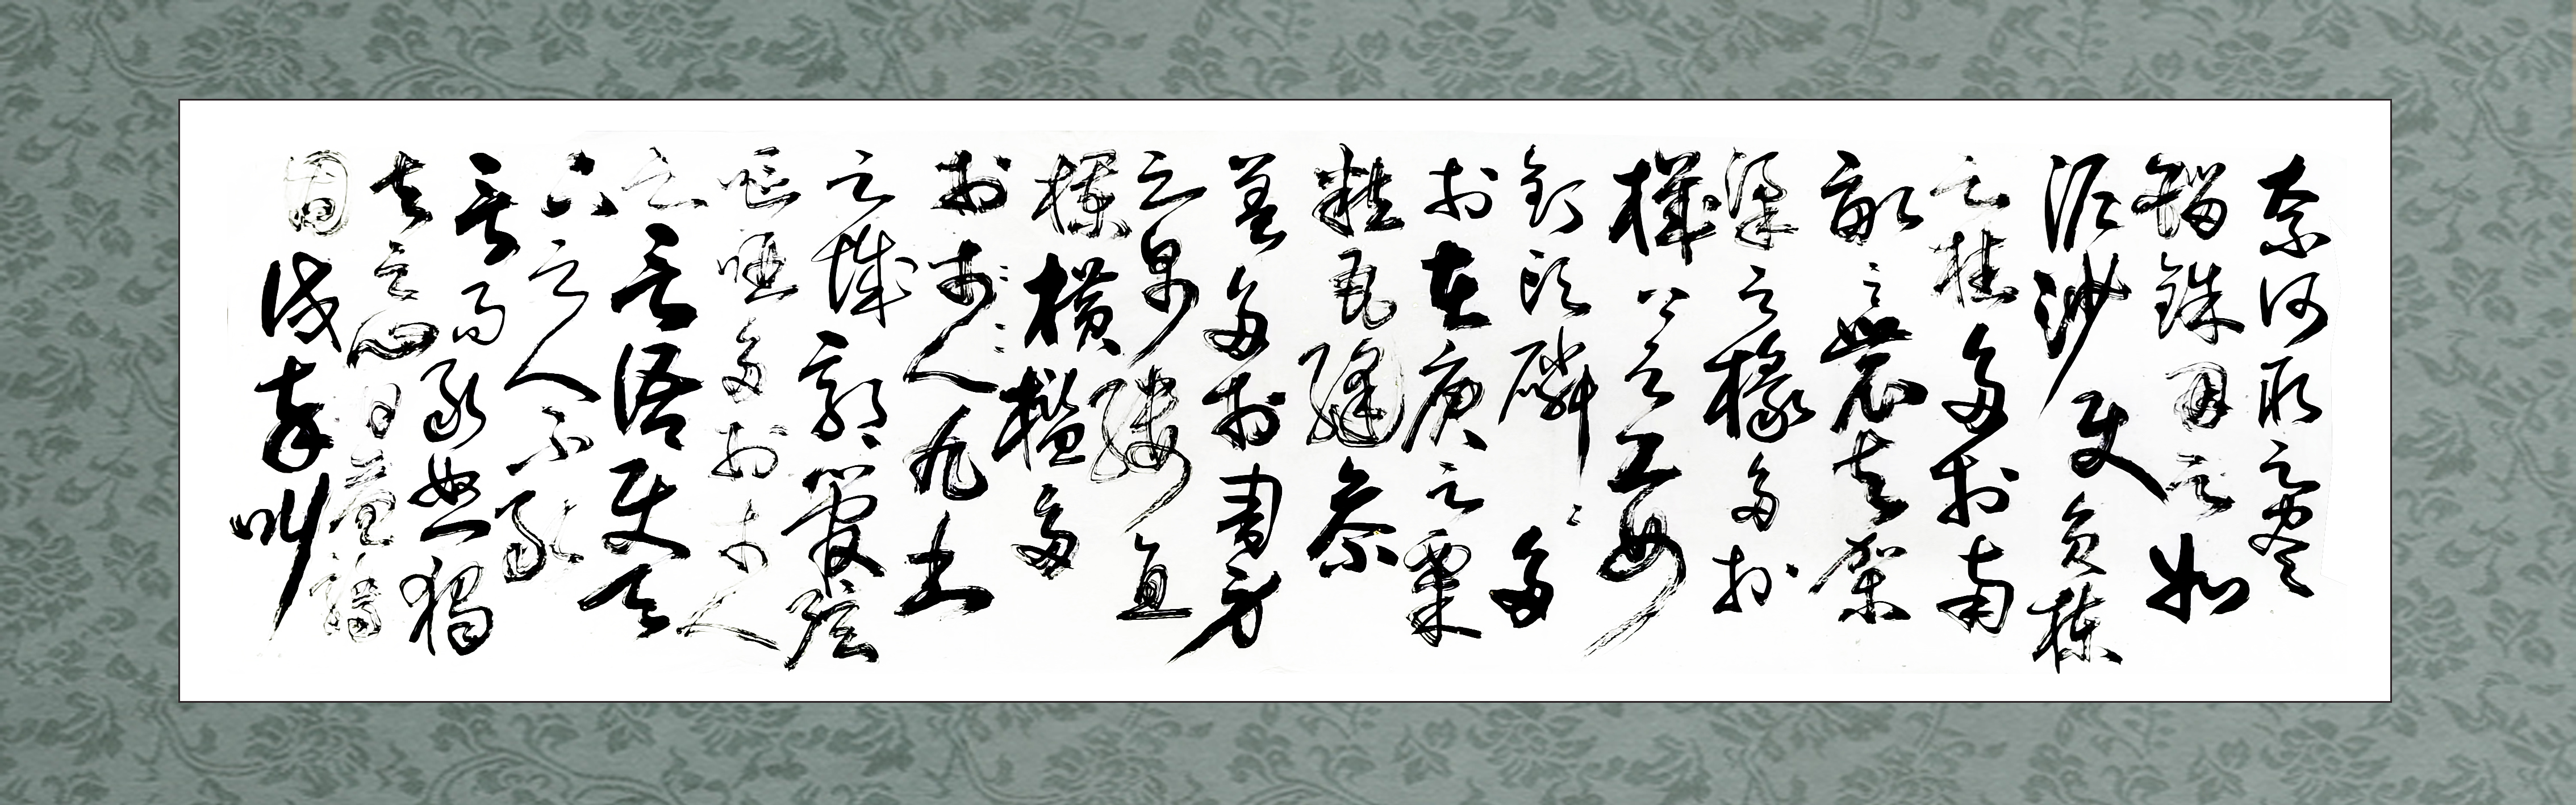 奈何取之盡
錙銖用之如
泥沙使負棟
之柱多於南
畝之農夫架
梁之椽多於
機上之工女
釘頭磷磷多
於在庾之粟
粒瓦縫參
差多於周身
之帛縷直
欄橫檻多
於市人九土
之城郭管弦
嘔啞多於市人
之言語使天
下之人不敢
言而敢怒獨
夫之心日益驕
固戍卒叫